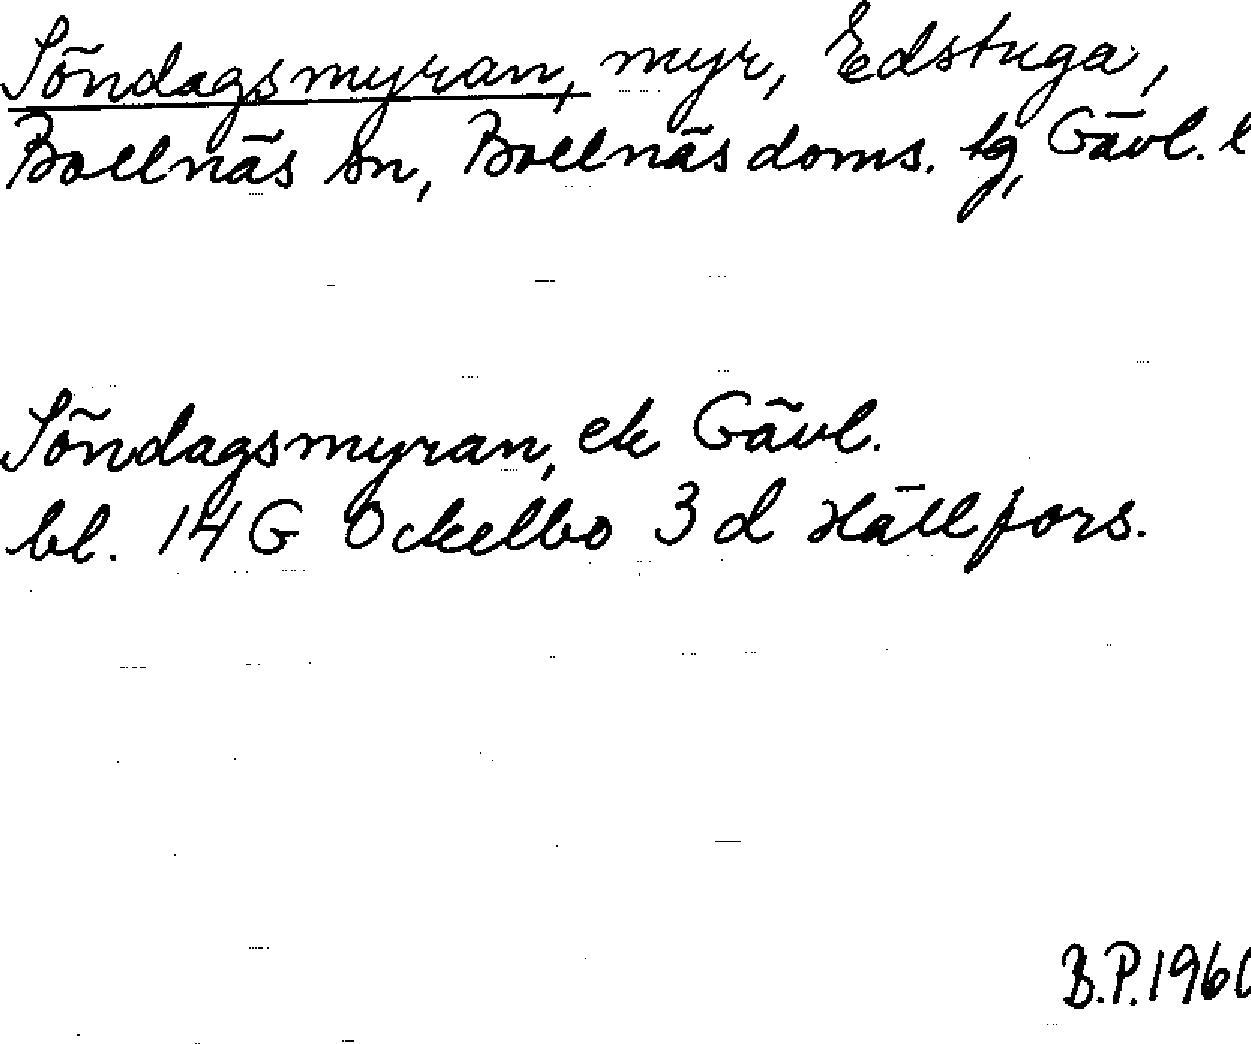 Söndagsmyran, myr, Edstuga,
Bollnäs sn, Bollnäs doms. tg, Gävl. l
Söndagsmyran, ek Gävl.
bl. 14 G Ockelbo 3 d Hällfors.
B.P. 1960